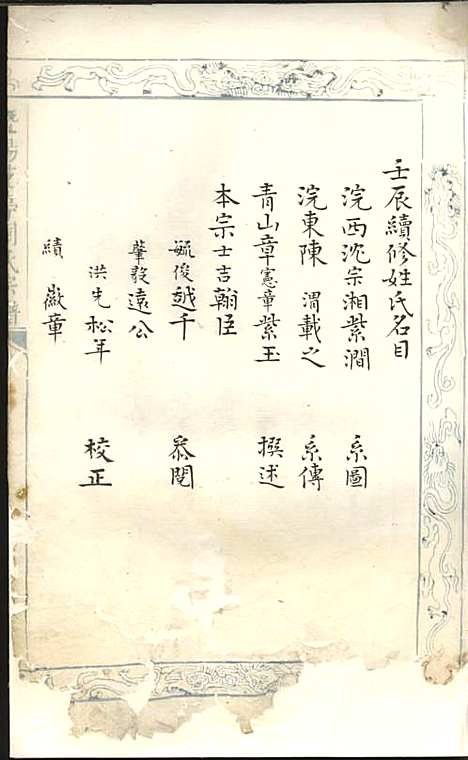 壬辰續修姓氏名目
浣西沈宗湘紫澗 系圖
浣東陳渭載之 系傳
青山章憲章紫玉 撰述
本宗士吉翰臣
毓俊越千 叅閱
肇毅遠公
洪先松年 校正
績徽章